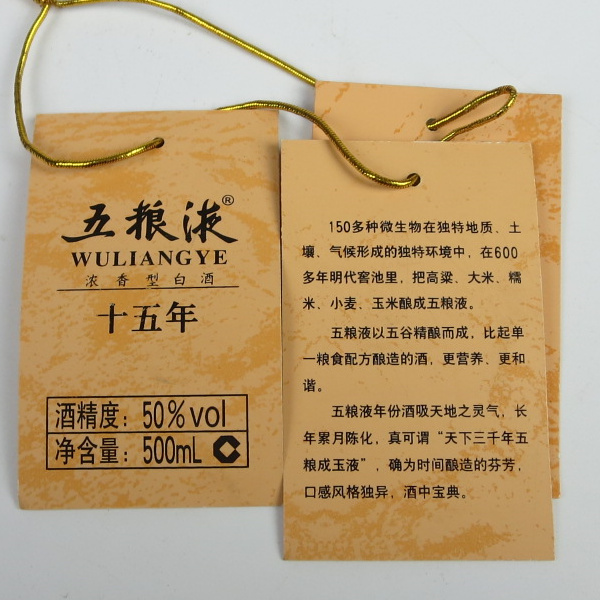 五粮液®
WULIANGYE
浓香型白酒
十五年
酒精度：50%vol
净含量：500mL
150多种微生物在独特地质、土
壤、气候形成的独特环境中，在600
多年明代窖池里，把高粱、大米、糯
米、小麦、玉米酿成五粮液。
五粮液以五谷精酿而成，比起单
一粮食配方酿造的酒，更营养、更和
谐。
五粮液年份酒吸天地之灵气，长
年累月陈化，真可谓“天下三千年五
粮成玉液”，确为时间酿造的芬芳，
口感风格独异，酒中宝典。